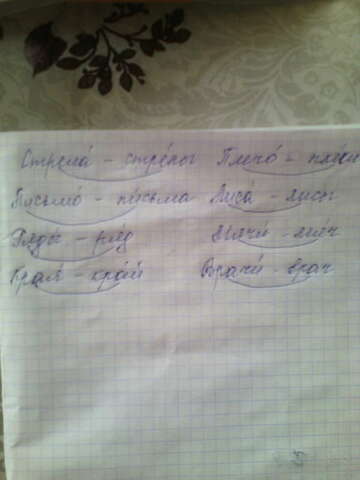 Стрела́ - стре́лы Плечо́ - пле́чи
Письмо́ - пи́сьма Лиса́ - лисы
Ряды́ - ряд Мячи́ - мяч
Края́ - край Врачи́ - врач